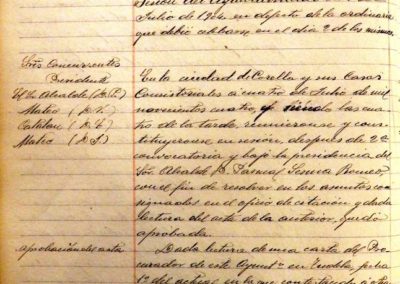 Julio de 1904 en defecto de la ordinaria
que debió celebrarse en el día 2 de los mismos
Sres Concurrentes
Presidente
Sr. Alcalde (D. P.)
Mateo
Catalan
Mateo (D. S.)
En la ciudad de Corella y sus Casas
Consistoriales a cuatro de Julio de mil
novecientos cuatro, y siendo las cuatro
de la tarde, reunieronse y cons
tituyeronse en sesión, despues de 2ª
convocatoria y bajo la presidencia del
Sor. Alcalde D. Pascual Sesma Romeo
con el fin de resolver en los asuntos con
signados en el oficio de citación y dada
lectura del acta de la anterior, quedó
aprobada.
Aprobacion del acta
Dada lectura de una carta del Pro
curador de este Ayuntº en Tudela, fecha
1º del actual en la que contestando a